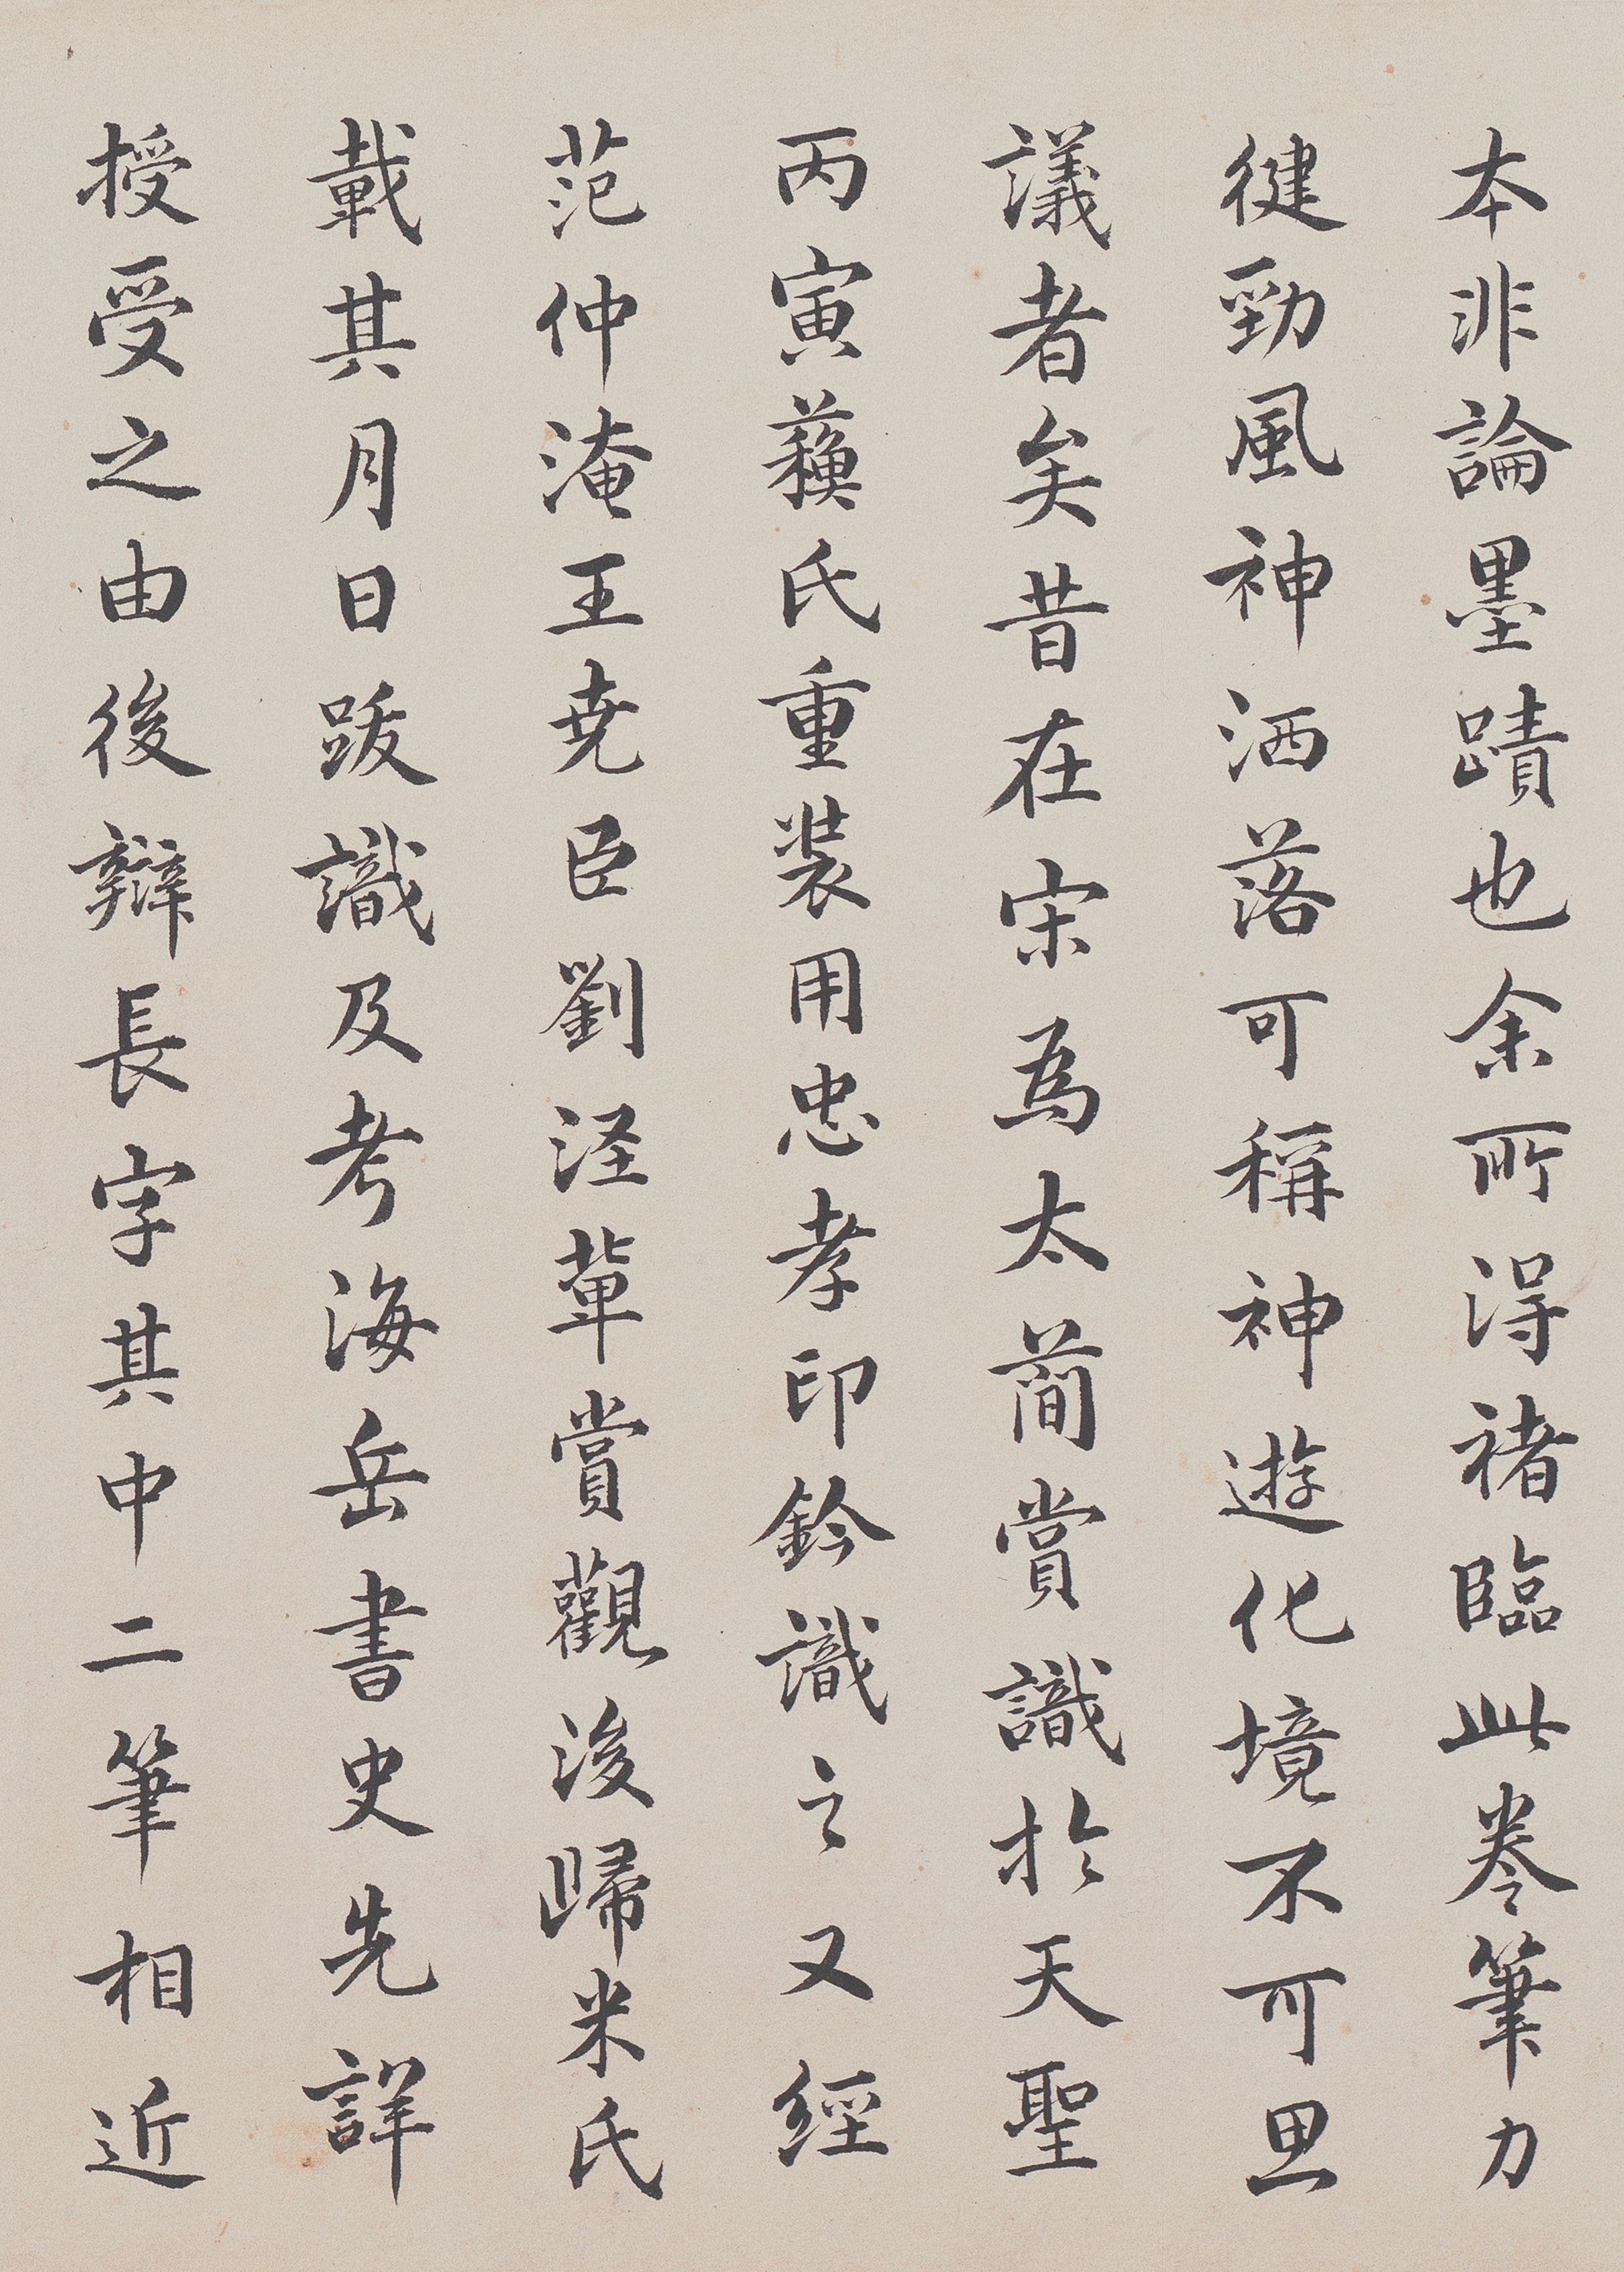 本非論墨蹟也余所得褚臨此卷筆力
健勁風神洒落可稱神遊化境不可思
議者矣昔在宋為太簡賞識於天聖
丙寅蘓氏重裝用忠孝印鈐識之又經
范仲淹王尭臣劉涇輩賞觀後歸米氏
載其月日跋識及考海岳書史先詳
授受之由後辯長字其中二筆相近